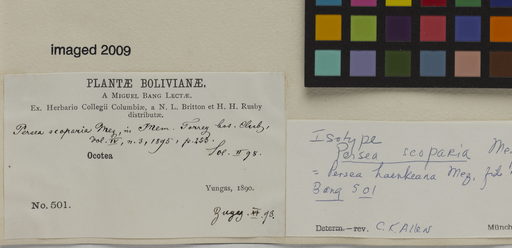 imaged 2009
PLANTÆ BOLIVIANÆ.
A MIGUEL BANG LECTÆ.
Ex. Herbario Collegii Columbiæ, a N. L. Britton et H. H. Rusby
distributæ.
Persea scoparia Mez, in Mem. Torrey bot. Club,
vol. IV, n. 3, 1895, p.
Ocotea
Yungas, 1890.
No. 501.
Isotype
Persea scoparia Me
= Persea haenkeana Mez, fide
Bang 501
Determ.—rev. C.K. Allen
Münch